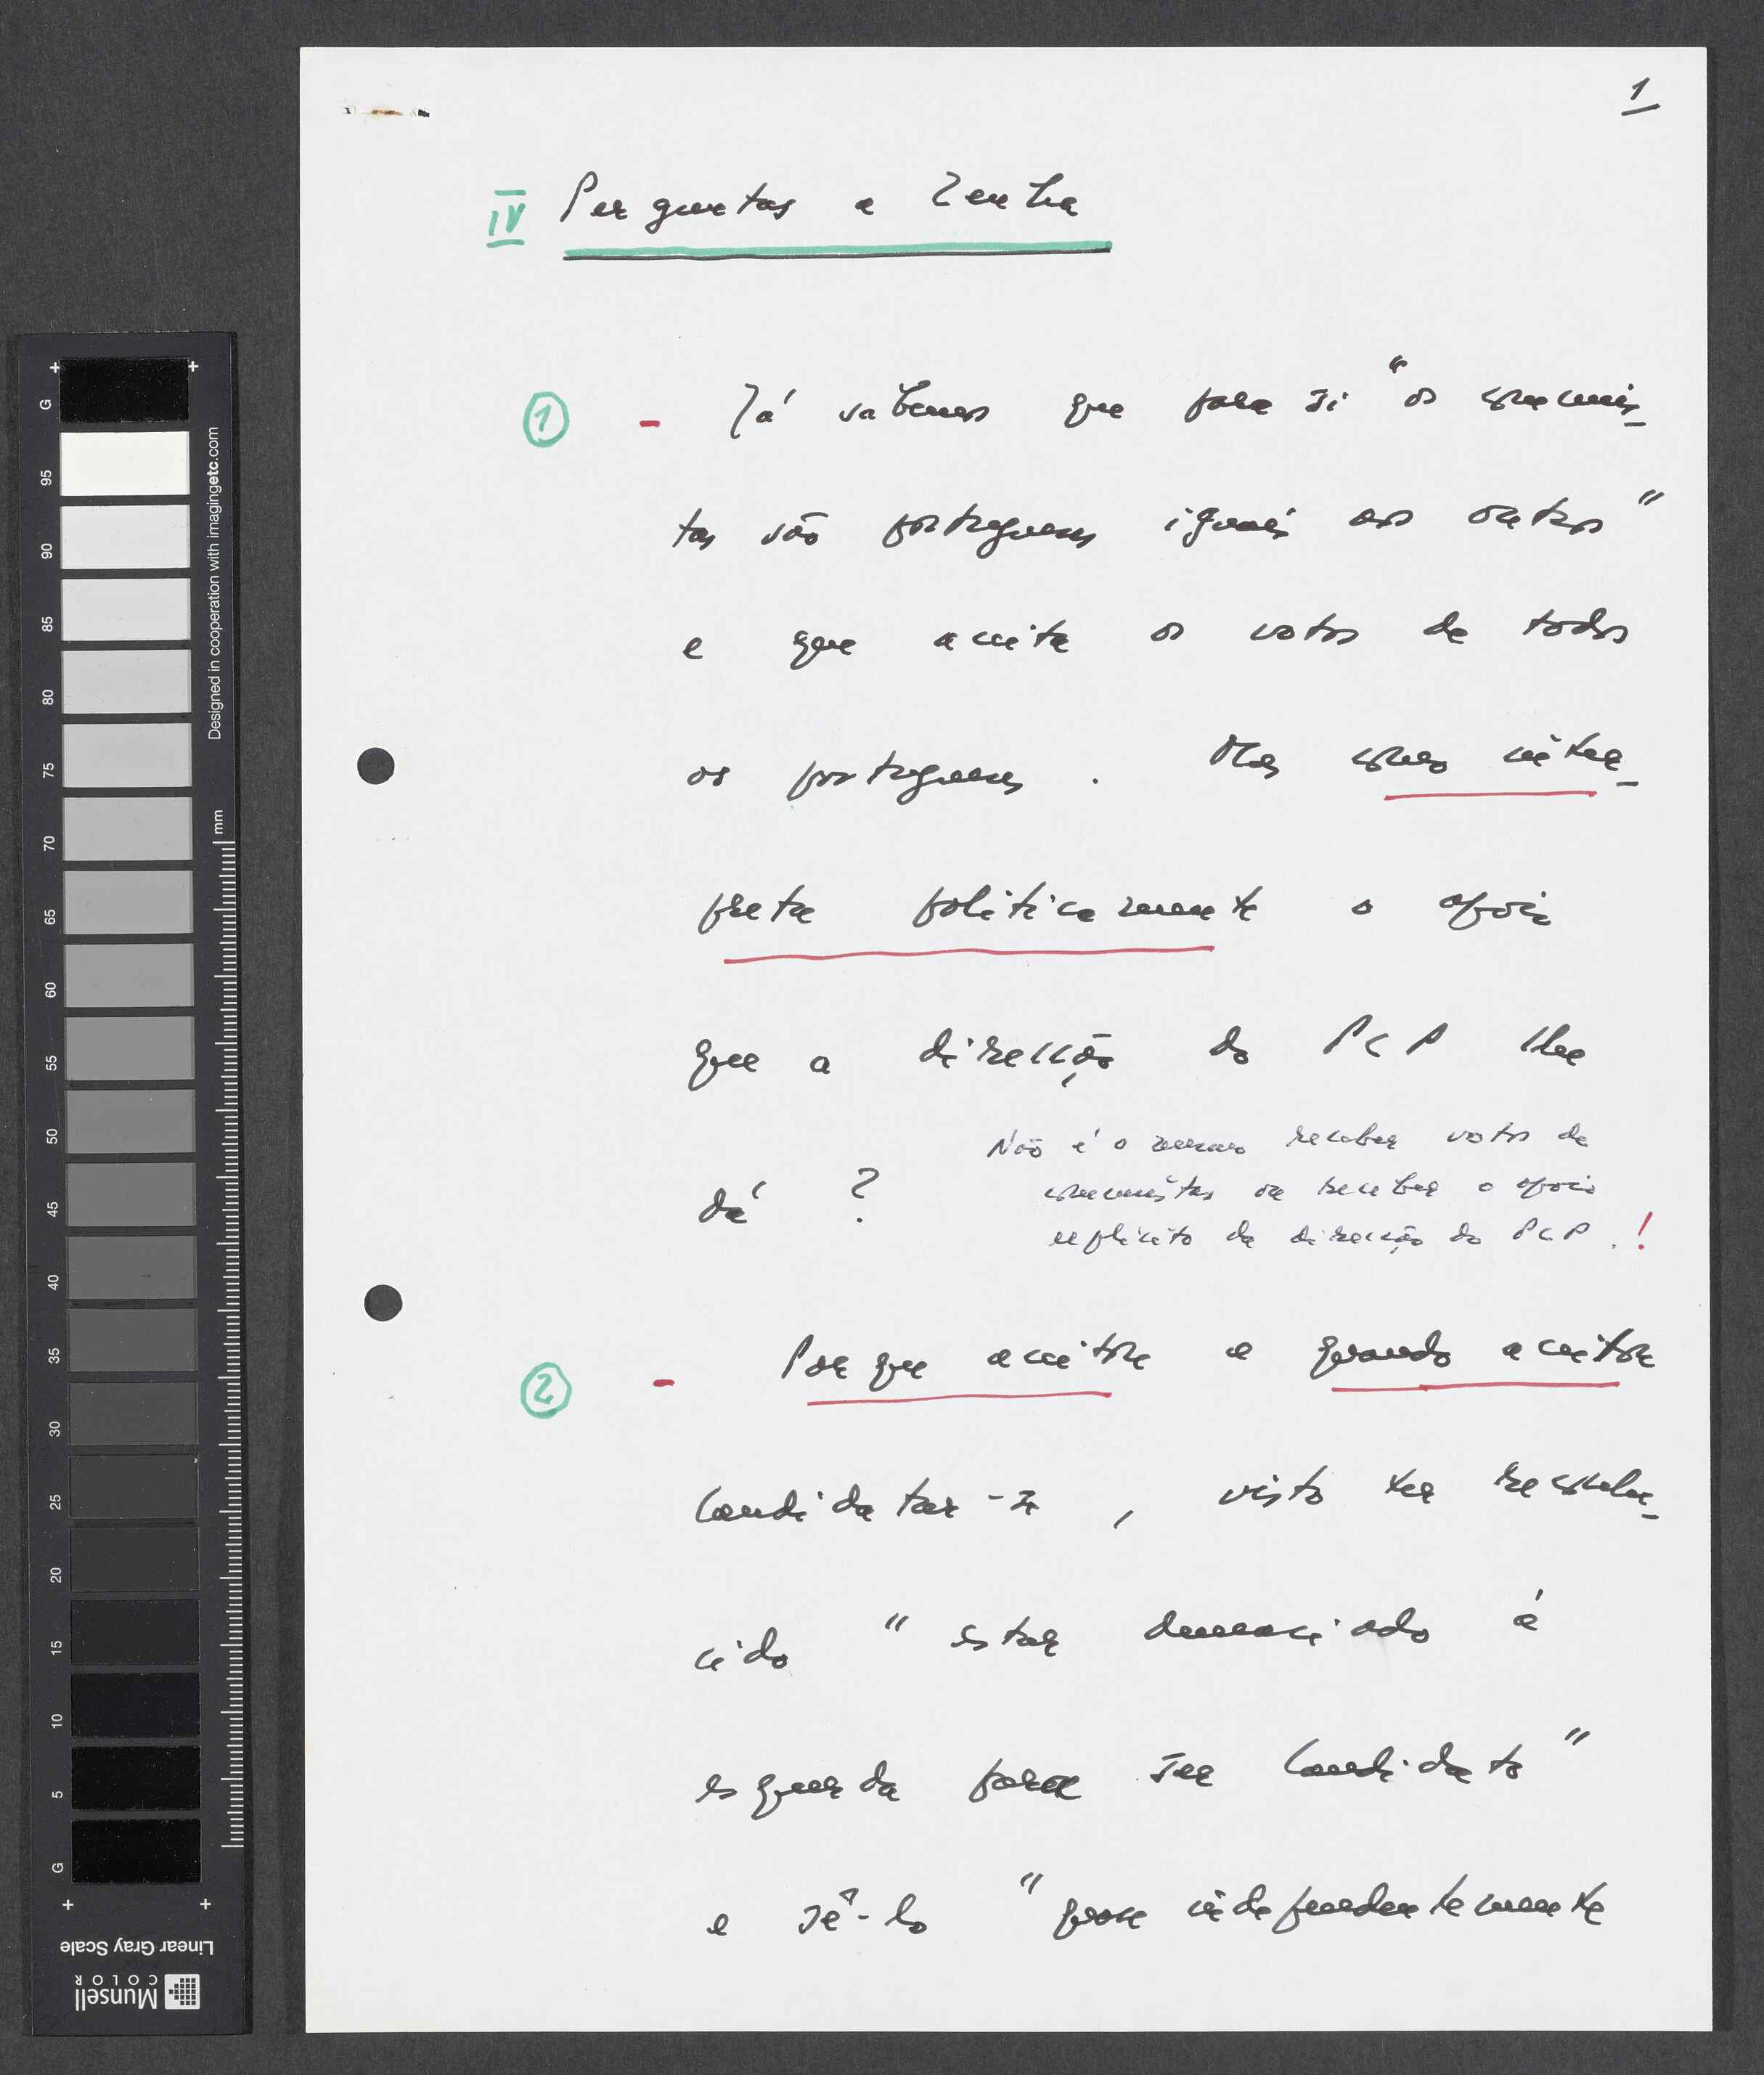 1
IV Perguntas a Zenha
1 - Já sabemos que para si "os comunis-
tas são portugueses iguais aos outros"
e que aceita os votos de todos
os portugueses. Mas como inter-
preta politicamente o apoio
que a direcção do PCP lhe
dá ?
Não é o mesmo receber votos de
comunistas ou receber o apoio
explícito da direcção do PCP. !
2 - Porque aceitou e quando aceitou
candidatar-se, visto ter reconhe-
cido "estar demasiado à
esquerda para ser candidato"
e sê-lo "quase independentemente
G
95
90
85
80
75
70
65
60
55
50
45
40
35
30
25
20
15
10
5
G
Designed in cooperation with imagingetc.com
mm
Linear Gray Scale
Munsell
COLOR